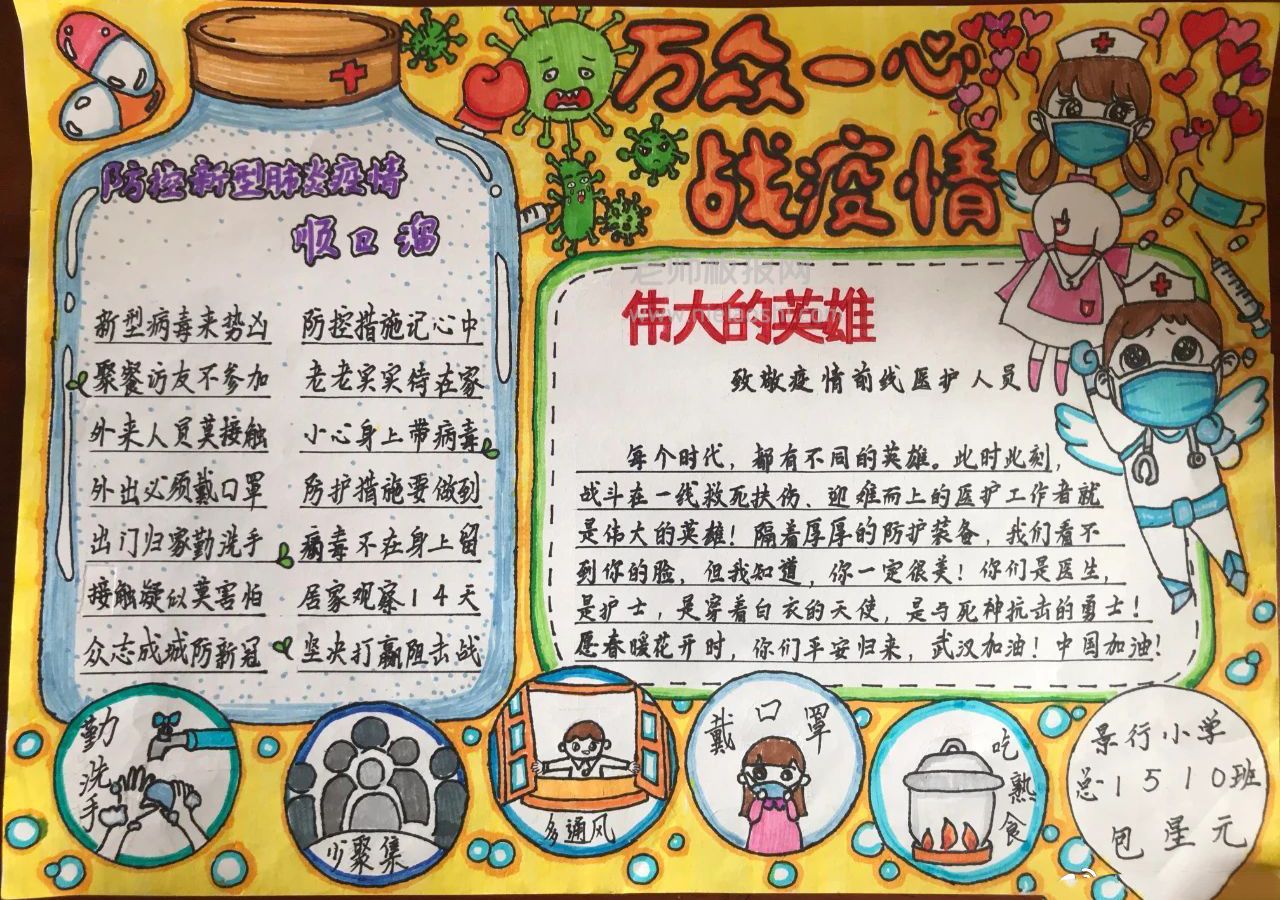 万众一心
战疫情
防控新型肺炎疫情
顺口溜
新型病毒来势凶 防控措施记心中
聚餐访友不参加 老老实实待在家
外来人员莫接触 小心身上带病毒
外出必须戴口罩 防护措施要做到
出门归家勤洗手 病毒不在身上留
接触疑似莫害怕 居家观察14天
众志成城防新冠 坚决打赢阻击战
老师板报网
伟大的英雄
致敬疫情前线医护人员
每个时代，都有不同的英雄。此时此刻，
战斗在一线救死扶伤、迎难而上的医护工作者就
是伟大的英雄！隔着厚厚的防护装备，我们看不
到你的脸，但我知道，你一定很美！你们是医生，
是护士，是穿着白衣的天使，是与死神抗击的勇士！
愿春暖花开时，你们平安归来，武汉加油！中国加油！
勤洗手
少聚集
多通风
戴口罩
吃熟食
景行小学
总1510班
包星元